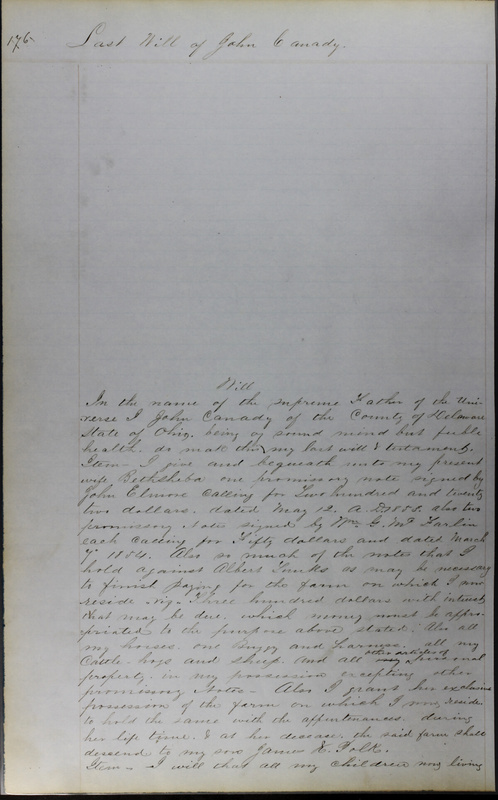 176
Last Will of John Canady.
Will
In the name of the supreme Father of the Uni-
verse I John Canady of the County of Delaware
State of Ohio, being of sound mind but feeble
health. do make this my last will & testament.
Item - I give and bequeath unto my present
wife Bethsheba one promissory note signed by
John Elmore Calling for Two hundred and twenty
two dollars. dated May 12. A.D. 1883. also two
promissory Notes signed by Wm. G. McFarlin
each Calling for Fifty dollars and dated March
7th 1884. Also so much of the notes that I
hold against Albert Funks as may be necessary
to finish paying for the farm on which I now
reside viz- Three hundred dollars with interest
that may be due. which money must be appro-
priated to the purpose above stated. Also all
my horses. one Buggy and harness. all my
Cattle. hogs and sheep. And all other articles of personal
property. in my possession excepting other
promissory Notes - Also I grant her exclusive
possession of the farm on which I now reside
to hold the same with the appentenances. during
her life time. & at her decease. the said farm shall
descend to my son James K. Polk.
Item - I will that all my children now living